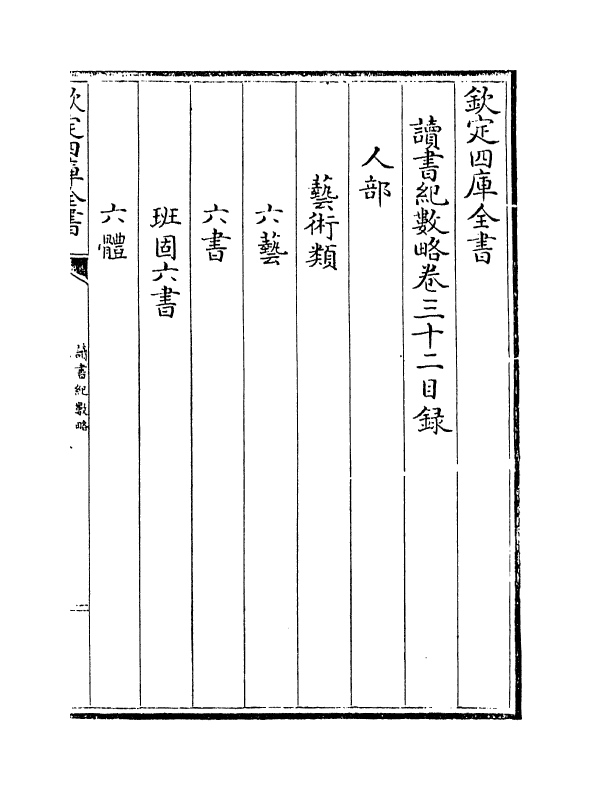 欽定四庫全書
讀書紀數略卷三十二目録
人部
藝術類
六藝
六書
班固六書
六體
欽定四庫全書
讀書紀數略